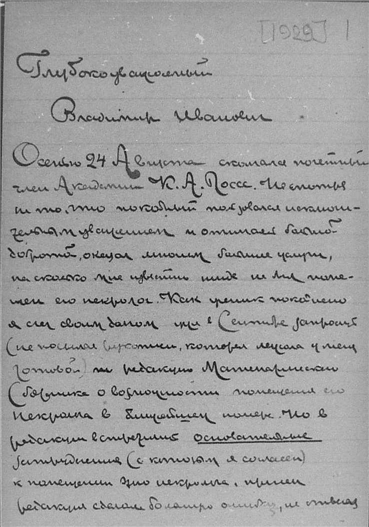 [1929] 1
Глубокоуважаемый
Владимир Иванович
Осенью 24 Августа скончался почетный
член Академии К. А. Поссе. Несмотря
на то, что покойный пользовался исключи-
тельным уважением и отличался большой
добротой, оказал многим большие услуги,
на сколько мне известно нигде не был поме-
щен его некролог. Как ученик покойного
я счел своим долгом еще в Сентябре запросить
(не посылая рукописи, которая лежала у меня
готовой) редакцию Математического
Сборника о возможности помещения его
Некролога в ближайшем номере. Но в
редакции встретились основательные
затруднения (с которыми я согласен)
к помещению этого некролога, причем
редакция сделала большую ошибку, не ответив